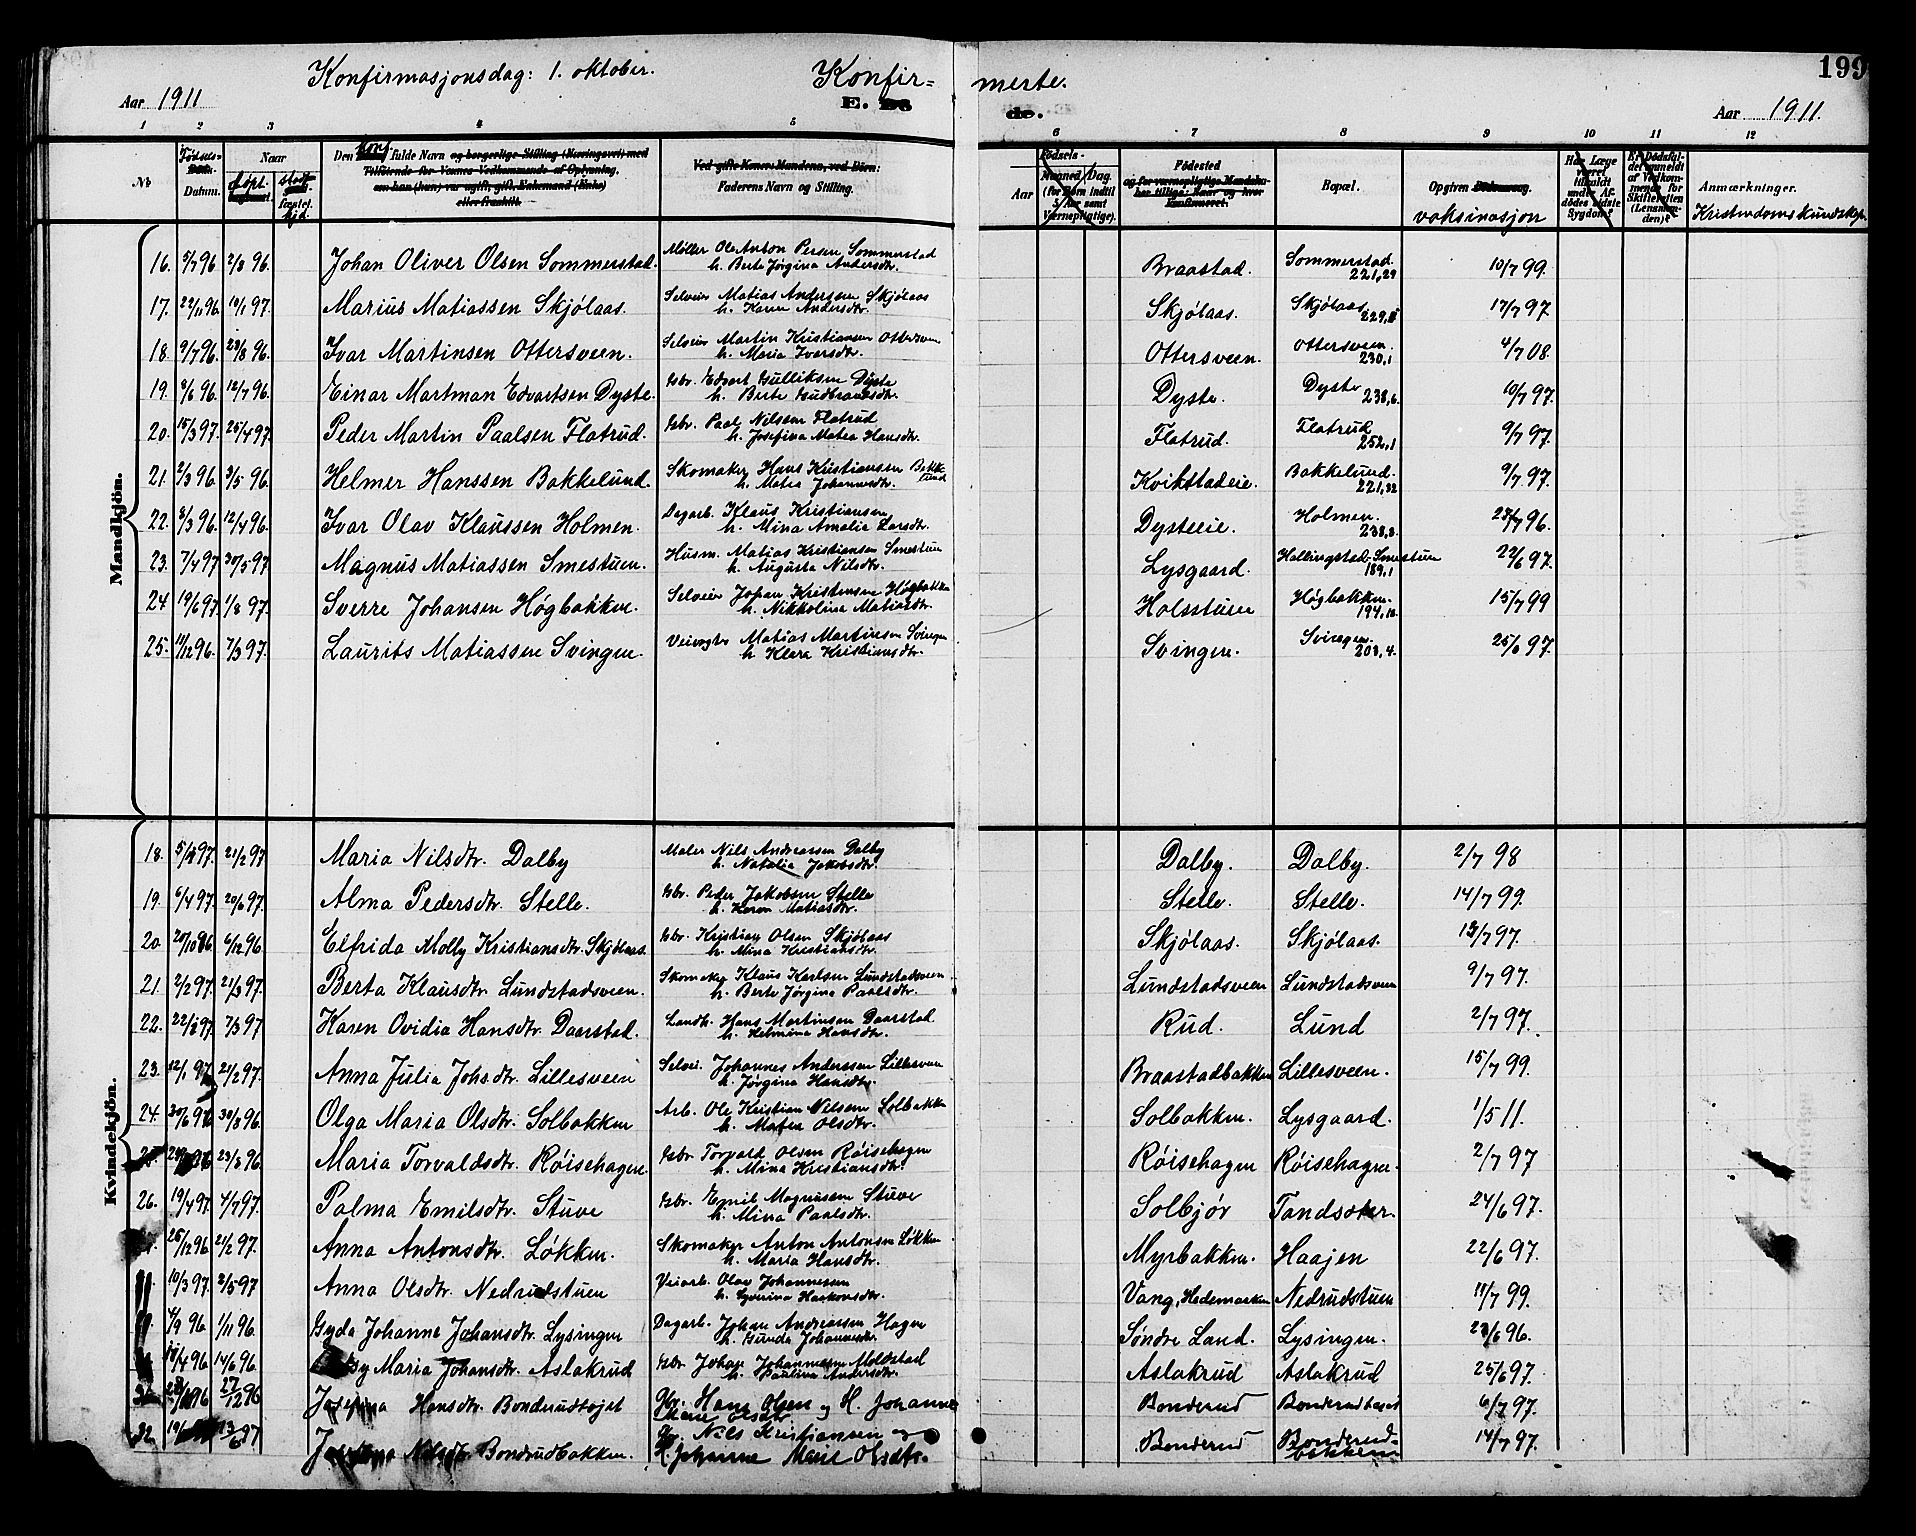 199
Konfirmasjonsdag: 1. oktober.
Konfir= merte.
Aar 1911
E. de.
Aar 1911.
1 2 3 4 5 6 7 8 9 10 11 12
No Fødsels- Datum. Naar døpt. Den konf. fulde Navn Faderens Navn og Stilling. Aar Fødested Bopæl. Opgiven vaksinasjon Anmærkninger. Kristendomskundskap.
Mandkjön.
16. 5/7 96 2/8 96. Johan Oliver Olsen Sommerstad. Møller Ole Anton Persen Sommerstad Braastad. Sommerstad. 10/7 99.
h. Berte Jørgina Andersdtr. 221,29
17. 22/11 96. 10/1 97. Marius Matiassen Skjølaas. Selveier Matias Andersen Skjølaas Skjølaas. Skjølaas 17/7 97.
h. Karen Andersdtr.
18. 9/7 96. 23/8 96. Ivar Martinsen Ottersveen. Selveier Martin Kristiansen Ottersveen Ottersveen. Ottersveen. 4/7 08.
h. Maria Iversdtr. 230,1
19. 8/6 96. 12/7 96. Einar Martman Edvartsen Dyste. Gbr. Edvart Gulliksen Dyste Dyste. Dyste 10/7 97.
h. Berte Gudbrandsdtr. 238,6.
20. 15/3 97. 25/4 97. Peder Martin Paalsen Flatrud. Gbr. Paal Nilsen Flatrud Flatrud. Flatrud 9/7 97.
h. Josefina Matea Hansdtr. 252,1
21. 2/3 96. 3/5 96. Helmer Hanssen Bakkelund. Skomaker Hans Kristiansen Bakkelund Kvikstadeie. Bakkelund. 9/7 97.
h. Matea Johannesdtr. 221,32
22. 8/3 96. 12/4 96. Ivar Olav Klaussen Holmen. Dagarb. Klaus Kristiansen Dysteeie. Holmen. 28/7 96.
h. Mina Amalia Larsdtr. 238,8.
23. 7/4 97 30/5 97 Magnus Matiassen Smestuen. Husm. Matias Kristiansen Smestuen Lysgaard. Hallingstad-Smestuen 22/6 97.
h. Augusta Nilsdtr. 189,1
24 19/6 97. 1/8 97. Sverre Johansen Høgbakken. Selveier Johan Kristensen Høgbakken Holsstuen Høgbakken. 15/7 99
h. Nikkoline Matiasdtr. 194,10.
25. 11/12 96. 7/3 97. Laurits Matiassen Svingen. Veivogter Matias Martinsen Svingen Svingen. Svingen. 25/6 97.
h. Klara Kristiansdtr. 208,4.
Kvindekjön.
18. 5/1 97. 21/2 97 Maria Nilsdtr. Dalby Maler Nils Andreassen Dalby Dalby. Dalby. 2/7 98
h. Natalia Jakobsdtr.
19. 6/4 97. 20/6 97. Alma Pedersdtr. Stelle. Gbr. Peder Jakobsen Stelle Stelle. Stelle. 14/7 99.
h. Karen Matiasdtr.
20. 20/10 96 6/12 96 Elfrida Molly Kristiansdtr. Skjølaas. Gbr. Kristian Olsen Skjølaas Skjølaas. Skjølaas. 13/7 97.
h. Mina Kristiansdtr.
21. 2/2 97. 21/3 97. Berta Klausdtr. Lundstadsveen. Skomaker Klaus Karlsen Lundstadsveen Lundstadsveen Lundstadsveen 9/7 97.
h. Berte Jørgina Paalsdtr.
22. 22/1 97. 7/3 97 Karen Ovidia Hansdtr. Daarstad. Landh. Hans Martinsen Daarstad Rud. Lund 2/7 97.
h. Helmina Hansdtr.
23. 12/1 97. 21/2 97. Anna Julia Johsdtr. Lillesveen Selvei. Johannes Andersen Lillesveen Braastadbakken Lillesveen. 15/7 99.
h. Jørgina Hansdtr.
24. 30/6 96 30/8 96. Olga Maria Olsdtr. Solbakken Arb. Ole Kristian Nilsen Solbakken Solbakken. Lysgaard. 1/5 11.
h. Matea Olsdtr.
25. 23/8 96. Maria Torvaldsdtr. Røisehagen. Gbr. Torvald Olsen Røisehagen Røisehagen Røisehagen. 2/7 97
h. Mina Kristiansdtr.
26. 19/4 97. 4/7 97. Palma Emilsdtr. Stuve Gbr. Emil Magnussen Stuve Solbjør Tandsæter. 24/6 97.
h. Mina Paalsdtr.
25/12 96. 21/2 97. Anna Antonsdtr. Løkken. Skomaker Anton Antonsen Løkken. Myrbakken. Haajen 22/6 97.
h. Maria Hansdtr.
10/3 97. 2/5 97 Anna Olsdtr. Nedrudstuen Veiarb. Olav Johannesen Vang, Hedemarken Nedrudstuen 11/7 99.
h. Haakonsdtr.
4/9 96. 1/11 96. Gyda Johanne Johansdtr. Lysingen Dagarb. Johan Andreassen Hagen Søndre Land. Lysingen. 96.
h. Gunda Johannesdtr.
/4 96. 14/6 96. Maria Johansdtr. Aslakrud Gbr. Johan Johannesen Moldstad Aslakrud Aslakrud 25/6 97.
h. Paulina Andersdtr.
96 27/12 96 Hansdtr. Bondrudtojet Gbr. Hans Olsen og H. Johanne Bonderud 6/7 97.
Marie Olsdtr.
32. 13/6 97 Nilsdtr. Bondrudbakken. Gbr. Nils Kristiansen og Bonderud Bonderud- 14/7 97.
H. Johanne Marie Olsdtr. bakken